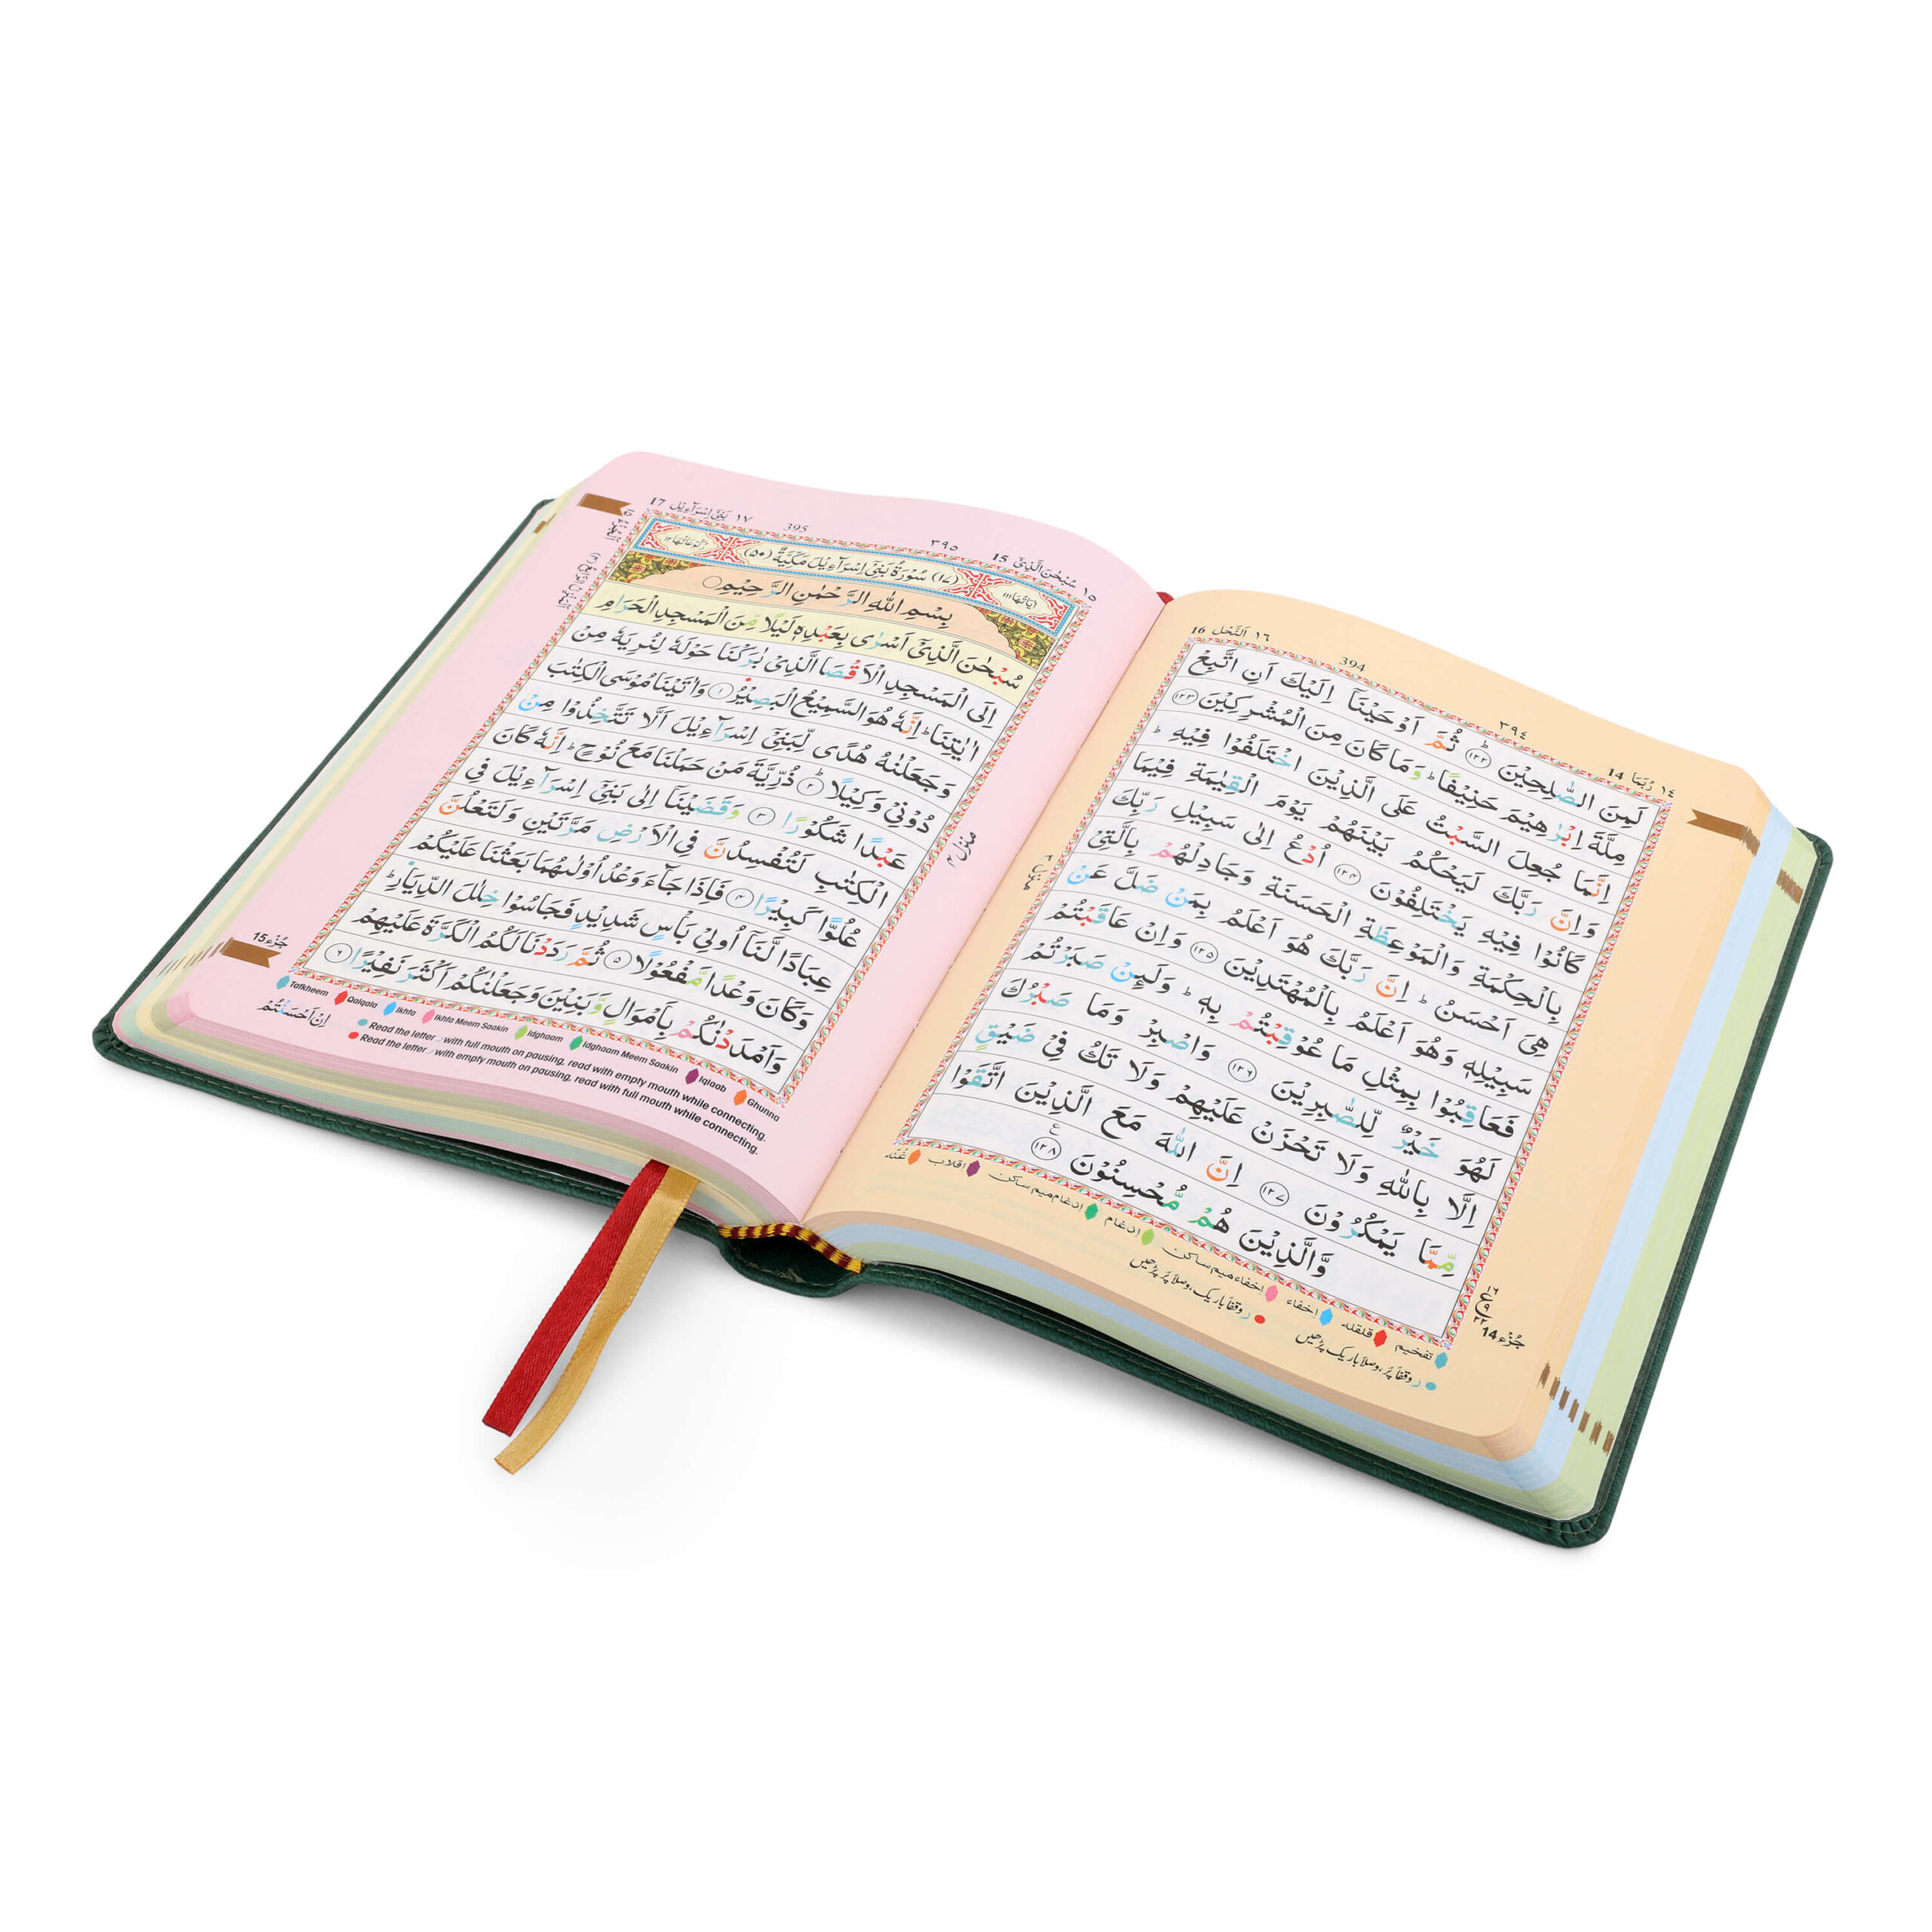 16 اَلنَّحْل ١٦
394
٣٩٤
14 رُبَمَا ١٤
لَمِنَ الصّٰلِحِيْنَ ؕ ﴿١٢٢﴾ ثُمَّ اَوْحَيْنَاۤ اِلَيْكَ اَنِ اتَّبِعْ
مِلَّةَ اِبْرٰهِيْمَ حَنِيْفًا ؕ وَمَا كَانَ مِنَ الْمُشْرِكِيْنَ ﴿١٢٣﴾
اِنَّمَا جُعِلَ السَّبْتُ عَلَى الَّذِيْنَ اخْتَلَفُوْا فِيْهِ ؕ
وَاِنَّ رَبَّكَ لَيَحْكُمُ بَيْنَهُمْ يَوْمَ الْقِيٰمَةِ فِيْمَا
كَانُوْا فِيْهِ يَخْتَلِفُوْنَ ﴿١٢٤﴾ اُدْعُ اِلٰى سَبِيْلِ رَبِّكَ
بِالْحِكْمَةِ وَالْمَوْعِظَةِ الْحَسَنَةِ وَجَادِلْهُمْ بِالَّتِيْ
هِيَ اَحْسَنُ ؕ اِنَّ رَبَّكَ هُوَ اَعْلَمُ بِمَنْ ضَلَّ عَنْ
سَبِيْلِهٖ وَهُوَ اَعْلَمُ بِالْمُهْتَدِيْنَ ﴿١٢٥﴾ وَاِنْ عَاقَبْتُمْ
فَعَاقِبُوْا بِمِثْلِ مَا عُوْقِبْتُمْ بِهٖ ؕ وَلَىِٕنْ صَبَرْتُمْ
لَهُوَ خَيْرٌ لِّلصّٰبِرِيْنَ ﴿١٢٦﴾ وَاصْبِرْ وَمَا صَبْرُكَ
اِلَّا بِاللّٰهِ وَلَا تَحْزَنْ عَلَيْهِمْ وَلَا تَكُ فِيْ ضَيْقٍ
مِّمَّا يَمْكُرُوْنَ ﴿١٢٧﴾ اِنَّ اللّٰهَ مَعَ الَّذِيْنَ اتَّقَوْا
وَّالَّذِيْنَ هُمْ مُّحْسِنُوْنَ ﴿١٢٨﴾
جُزْء 14
تفخيم قلقله اخفاء اخفاء ميم ساكن ادغام ادغام ميم ساكن اقلاب غُنّه
ر وقفاً پُر، وصلاً باریک پڑھیں
ر وقفاً باریک، وصلاً پُر پڑھیں
17 بَنِيْۤ اِسْرَآءِيْل ١٧
395
٣٩٥
15 سُبْحٰنَ الَّذِيْۤ ١٥
اٰيَاتُهَا ١١١ (١٧) سُوْرَةُ بَنِيْۤ اِسْرَآءِيْلَ مَكِّيَّةٌ (٥٠) رُكُوْعَاتُهَا ١٢
بِسْمِ اللّٰهِ الرَّحْمٰنِ الرَّحِيْمِ
سُبْحٰنَ الَّذِيْۤ اَسْرٰى بِعَبْدِهٖ لَيْلًا مِّنَ الْمَسْجِدِ الْحَرَامِ
اِلَى الْمَسْجِدِ الْاَقْصَا الَّذِيْ بٰرَكْنَا حَوْلَهٗ لِنُرِيَهٗ مِنْ
اٰيٰتِنَا ؕ اِنَّهٗ هُوَ السَّمِيْعُ الْبَصِيْرُ ﴿١﴾ وَاٰتَيْنَا مُوْسَى الْكِتٰبَ
وَجَعَلْنٰهُ هُدًى لِّبَنِيْۤ اِسْرَآءِيْلَ اَلَّا تَتَّخِذُوْا مِنْ
دُوْنِيْ وَكِيْلًا ؕ ﴿٢﴾ ذُرِّيَّةَ مَنْ حَمَلْنَا مَعَ نُوْحٍ ؕ اِنَّهٗ كَانَ
عَبْدًا شَكُوْرًا ﴿٣﴾ وَقَضَيْنَاۤ اِلٰى بَنِيْۤ اِسْرَآءِيْلَ فِي
الْكِتٰبِ لَتُفْسِدُنَّ فِي الْاَرْضِ مَرَّتَيْنِ وَلَتَعْلُنَّ
عُلُوًّا كَبِيْرًا ﴿٤﴾ فَاِذَا جَآءَ وَعْدُ اُوْلٰىهُمَا بَعَثْنَا عَلَيْكُمْ
عِبَادًا لَّنَاۤ اُولِيْ بَاْسٍ شَدِيْدٍ فَجَاسُوْا خِلٰلَ الدِّيَارِ ؕ
وَكَانَ وَعْدًا مَّفْعُوْلًا ﴿٥﴾ ثُمَّ رَدَدْنَا لَكُمُ الْكَرَّةَ عَلَيْهِمْ
وَاَمْدَدْنٰكُمْ بِاَمْوَالٍ وَّبَنِيْنَ وَجَعَلْنٰكُمْ اَكْثَرَ نَفِيْرًا ﴿٦﴾
منزل ٤
جُزْء 15
Tafkheem Qalqala Ikhfa Ikhfa Meem Saakin Idghaam Idghaam Meem Saakin Iqlaab Ghunna
Read the letter ر with full mouth on pausing, read with empty mouth while connecting.
Read the letter ر with empty mouth on pausing, read with full mouth while connecting.
اِنْ اَحْسَنْتُمْ